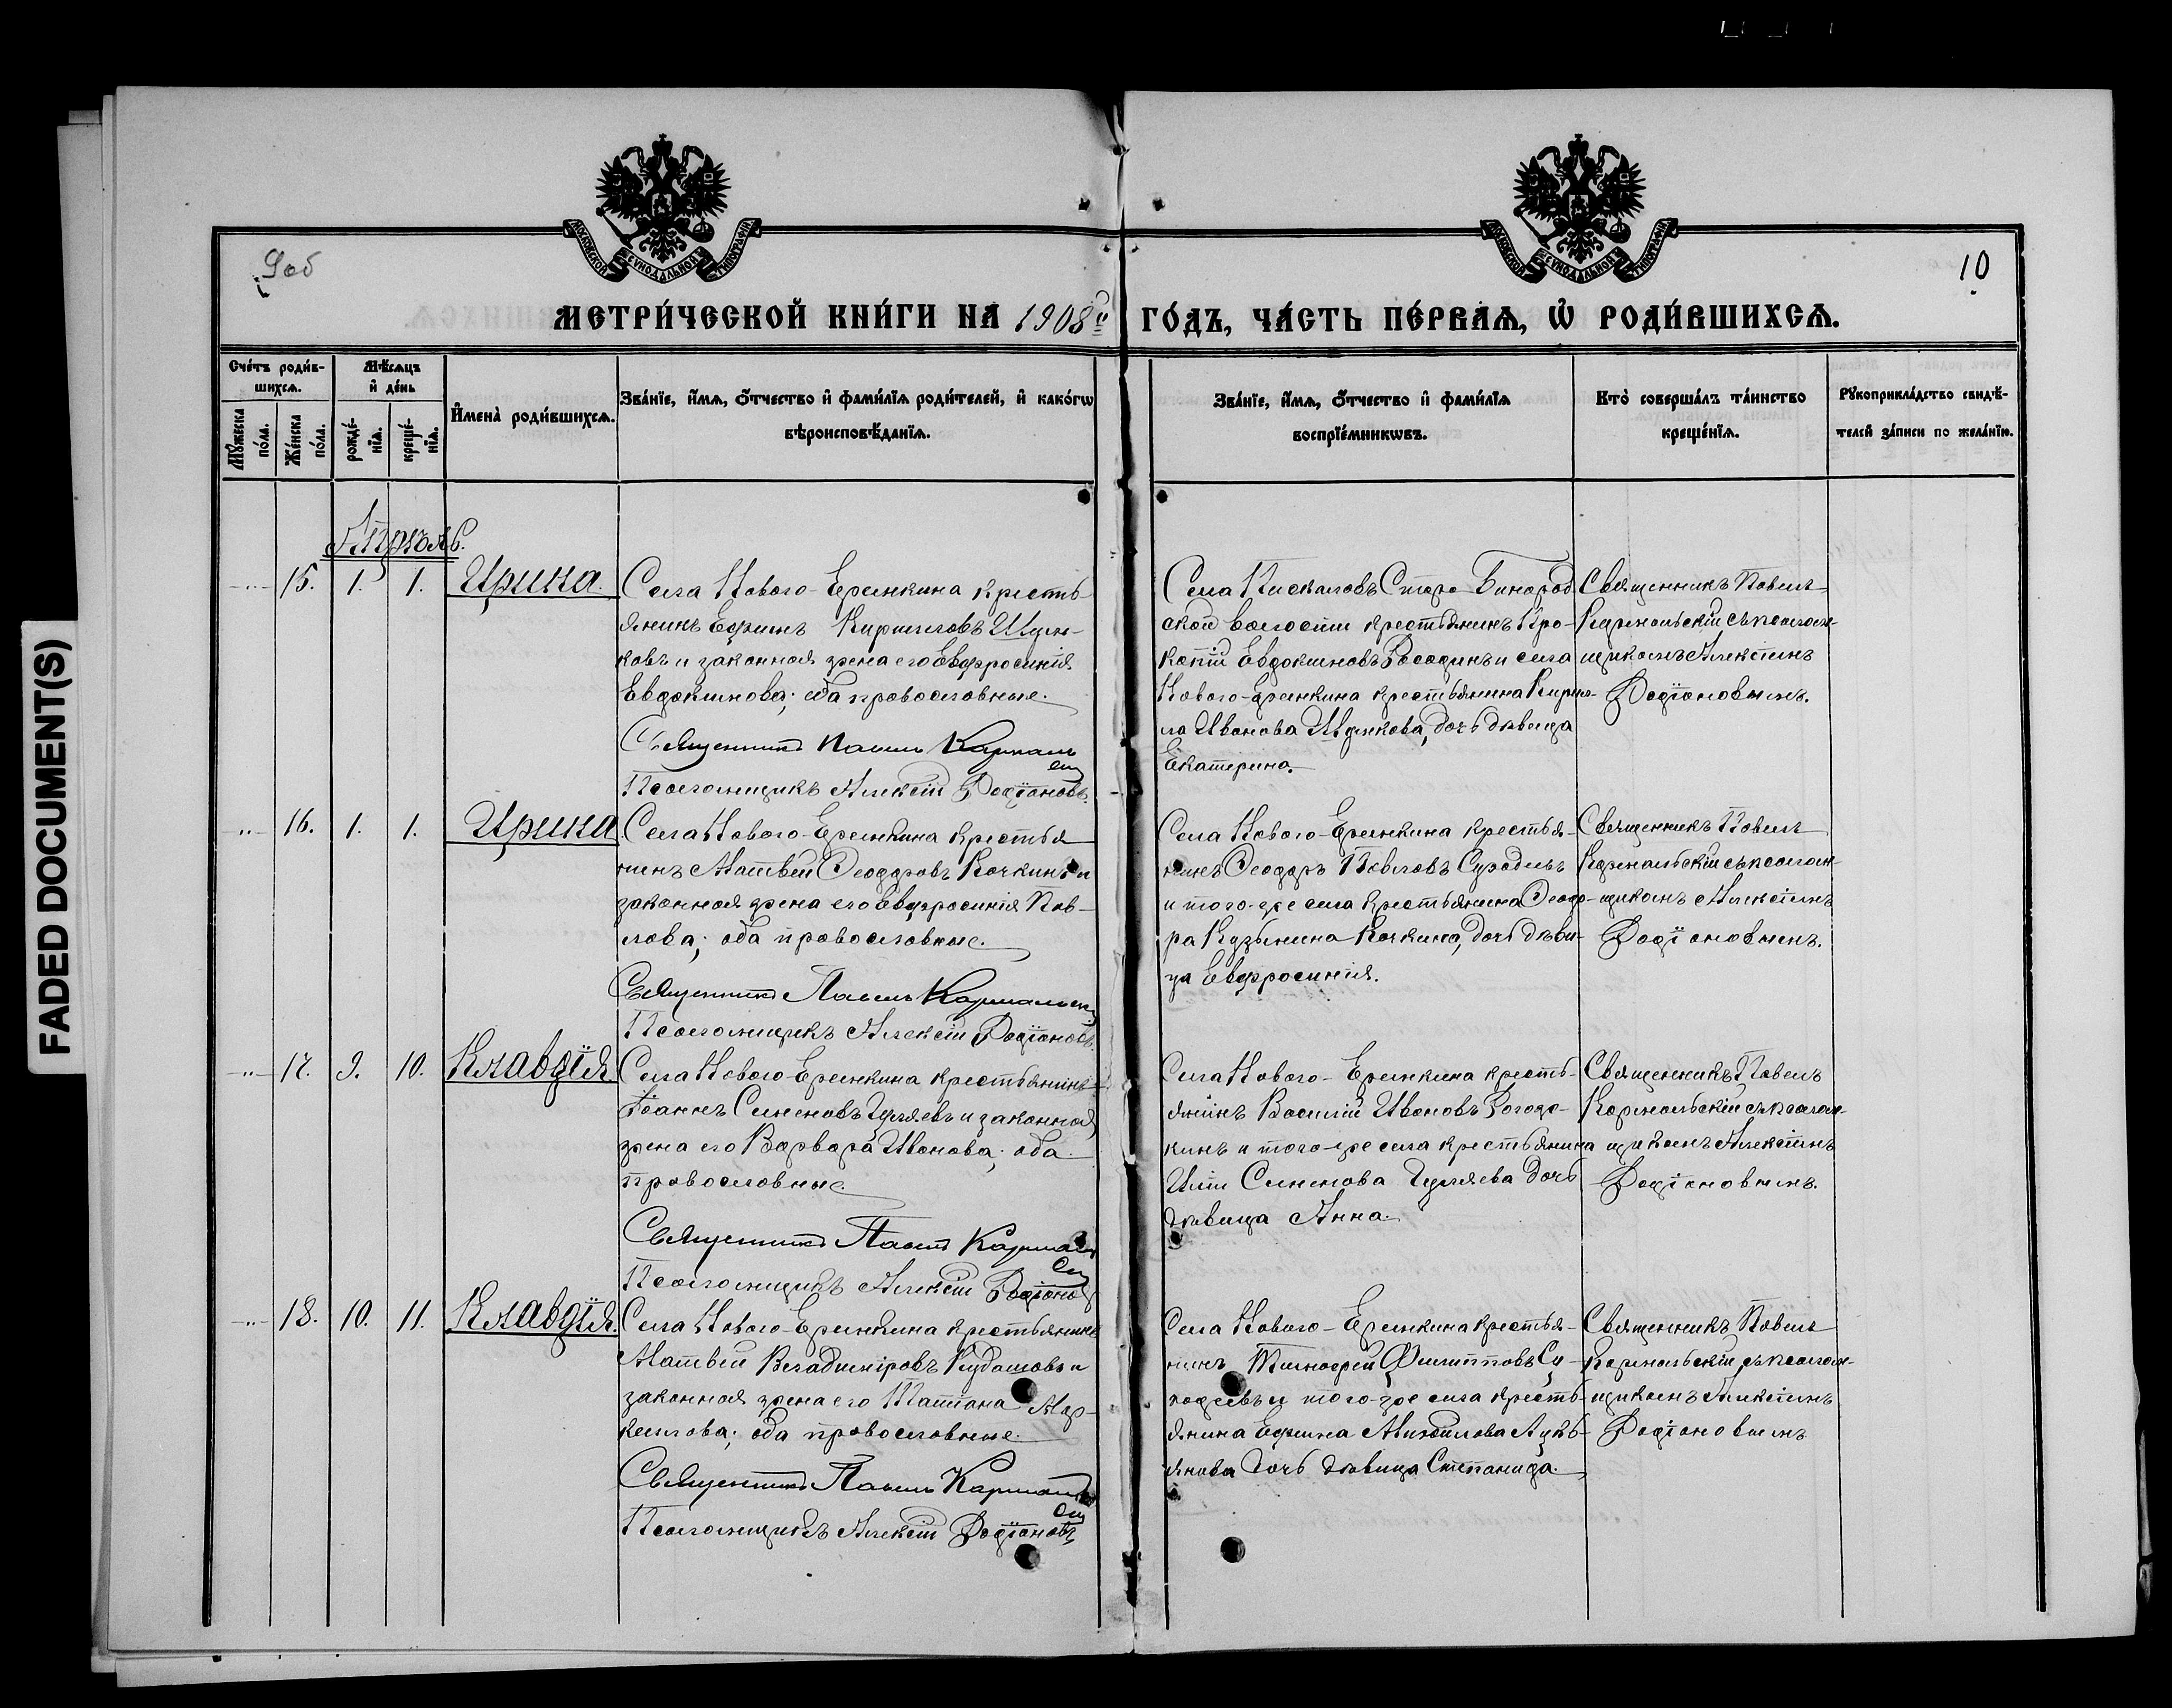 FADED DOCUMENT(S)
9об
10
МОСКОВСКОЙ СѴНОДАЛЬНОЙ ТИПОГРАФІИ
МОСКОВСКОЙ СѴНОДАЛЬНОЙ ТИПОГРАФІИ
МЕТРИ́ЧЕСКОЙ КНИ́ГИ НА 1908й ГО́ДЪ, ЧА́СТЬ ПЕ́РВАѦ, Ѡ҆ РОДИ́ВШИХСѦ.
Сче́тъ роди́в-
шихсѧ.
Мꙋ́жеска
по́ла.
Же́нска
по́ла.
Мѣ́сѧцъ
и҆ де́нь
рожде́-
нїѧ.
креще́-
нїѧ.
И҆мена̀ роди́вшихсѧ.
Зва́нїе, и҆́мѧ, ѻ҆́тчество и҆ фами́лїѧ роди́телей, и҆ како́гѡ
вѣроисповѣ́данїѧ.
Зва́нїе, и҆́мѧ, ѻ҆́тчество и҆ фами́лїѧ
воспрїе́мникѡвъ.
Кто̀ соверша́лъ та́инство
креще́нїѧ.
Рꙋкоприкла́дство свидѣ́-
телей за́писи по жела́нїю.
Апрѣль.
15. 1. 1. Ирина.
Села Нового-Еремкина кресть-
янинъ Ефимъ Кирилловъ
ковъ и законная жена его Евфросинія
Евдокимова; оба православные.
Священникъ Павелъ Кармальскій
Псаломщикъ Алексій Родіоновъ.
Села Пискаловъ Старо-Бинарад
ской волости крестьянинъ Про-
копій Евдокимовъ и села
Нового-Еремкина крестьянина Кирил-
ла Иванова дочь дѣвица
Екатерина.
Священникъ Павелъ
Кармальскій съ псалом-
щикомъ Алексіемъ
Родіоновымъ.
16. 1. 1. Ирина
Села Нового-Еремкина крестья-
нинъ Матвѣй Ѳеодоровъ Кочкинъ и
законная жена его Евфросинія Пав-
лова; оба православные.
Священникъ Павелъ Кармальскій
Псаломщикъ Алексій Родіоновъ.
Села Нового-Еремкина крестья-
нинъ Ѳеодоръ Павловъ
и того-же села крестьянина Ѳеодо-
ра Кузьмина Кочкина, дочь дѣви-
ца Евфросинія.
Священникъ Павелъ
Кармальскій съ псалом-
щикомъ Алексіемъ
Родіоновымъ.
17. 9. 10. Клавдія.
Села Нового-Еремкина крестьянинъ
Іоаннъ Симеоновъ Гуляевъ и законная
жена его Варвара Иванова; оба
православные.
Священникъ Павелъ Кармальскій
Псаломщикъ Алексій Родіоновъ
Села Нового-Еремкина кресть-
янинъ Василій Ивановъ
кинъ и того-же села крестьянина
Иліи Симеонова Гуляева дочь
дѣвица Анна.
Священникъ Павелъ
Кармальскій съ псалом-
щикомъ Алексіемъ
Родіоновымъ.
18. 10. 11. Клавдія.
Села Нового-Еремкина крестьянинъ
Матвѣй Владиміровъ Кудашовъ и
законная жена его Татіана Мар-
келлова; оба православные.
Священникъ Павелъ Кармальскій
Псаломщикъ Алексій Родіоновъ
Села Нового-Еремкина крестья-
нинъ Тимофей Филипповъ
и того-же села кресть-
янина Ефима Михайлова Лукь-
янова дочь дѣвица Степанида.
Священникъ Павелъ
Кармальскій съ псалом-
щикомъ Алексіемъ
Родіоновымъ